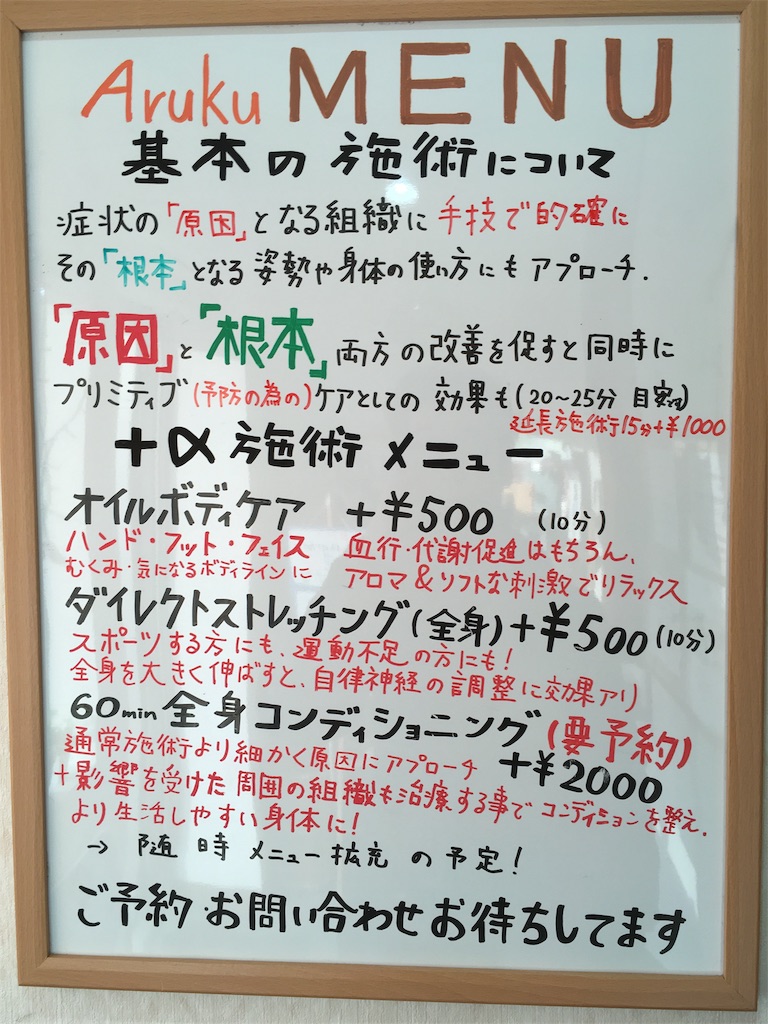 Aruku MENU
基本の施術について
症状の「原因」となる組織に手技で的確に
その「根本」となる姿勢や身体の使い方にもアプローチ.
「原因」と「根本」両方の改善を促すと同時に
プリミティブ(予防の為の)ケアとしての効果も(20〜25分 目安です)
延長施術15分+¥1000
+α施術メニュー
オイルボディケア +¥500 (10分)
ハンド・フット・フェイス 血行・代謝促進はもちろん、
むくみ・気になるボディラインに アロマ&ソフトな刺激でリラックス
ダイレクトストレッチング(全身)+¥500(10分)
スポーツする方にも、運動不足の方にも!
全身を大きく伸ばすと、自律神経の調整に効果アリ
60min全身コンディショニング(要予約)
通常施術より細かく原因にアプローチ +¥2000
+影響を受けた周囲の組織も治療する事でコンディションを整え.
より生活しやすい身体に!
→ 随時 メニュー拡充の予定!
ご予約・お問い合わせお待ちしてます